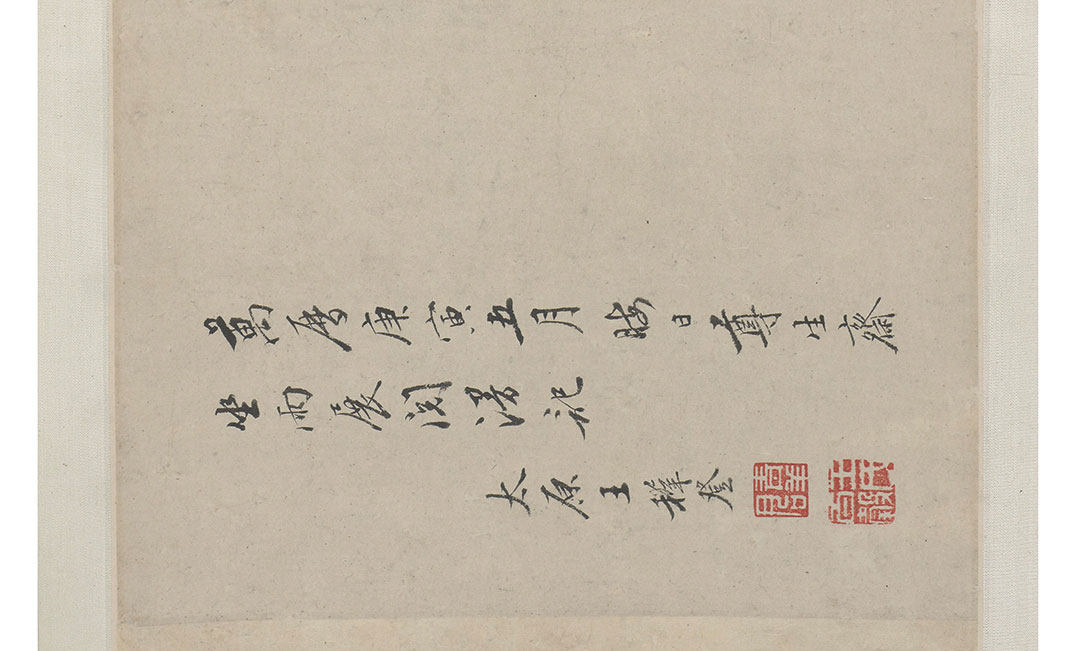 萬曆庚寅五月晦日尊生齋
坐雨展閱漫記
太原王穉登